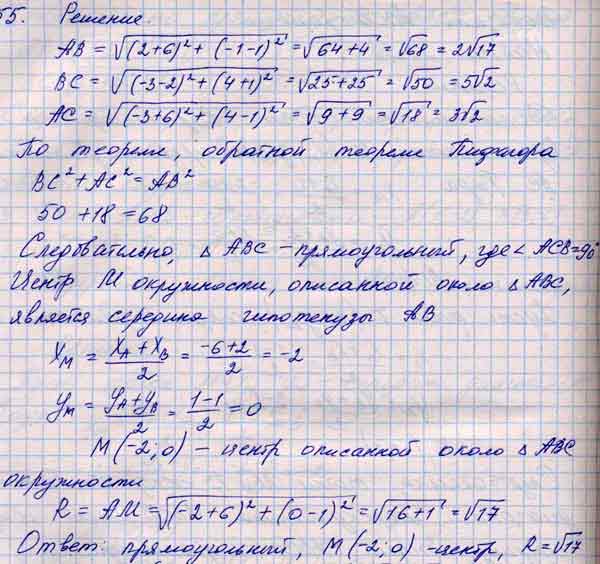 55. Решение.
AB = √((2+6)² + (-1-1)²) = √(64+4) = √68 = 2√17
BC = √((-3-2)² + (4+1)²) = √(25+25) = √50 = 5√2
AC = √((-3+6)² + (4-1)²) = √(9+9) = √18 = 3√2
По теореме, обратной теореме Пифагора
BC² + AC² = AB²
50 + 18 = 68
Следовательно, △ ABC - прямоугольный, где ∠ ACB = 90°
Центр M окружности, описанной около △ ABC,
является середина гипотенузы AB
X_M = (X_A + X_B)/2 = (-6+2)/2 = -2
y_M = (y_A + y_B)/2 = (1-1)/2 = 0
M (-2; 0) - центр описанной около △ ABC
окружности
R = AM = √((-2+6)² + (0-1)²) = √(16+1) = √17
Ответ: прямоугольный, M (-2; 0) - центр, R = √17